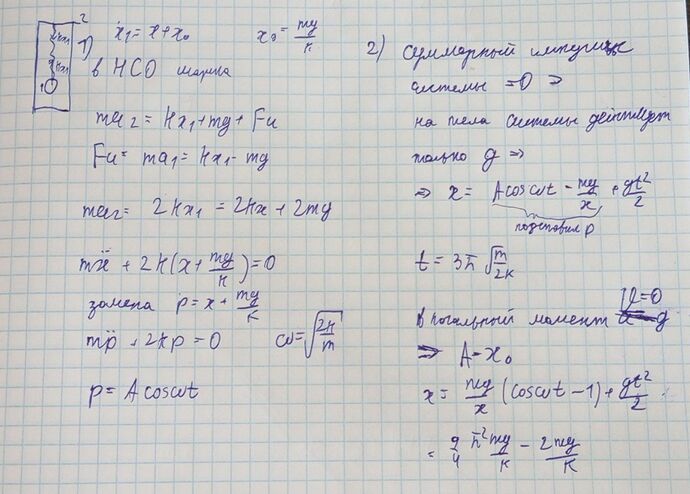 2
1) x₁ = x + x₀    x₀ = mg/k
kx₁
kx₁
1
в НСО шарика
ma₂ = kx₁ + mg + Fи
Fи = ma₁ = kx₁ - mg
ma₂ = 2kx₁ = 2kx + 2mg
mẍ + 2k(x + mg/k) = 0
замена p = x + mg/k
mp̈ + 2kp = 0    ω = √(2k/m)
p = A cosωt
2) суммарный импульс
системы = 0 ⇒
на тела системы действует
только g ⇒
⇒ x = A cosωt - mg/x + gt²/2
подставил p
t = 3π √(m/2k)
V = 0
в начальный момент
⇒ A = x₀
x = mg/x (cosωt - 1) + gt²/2
= 9/4 π² mg/k - 2mg/k